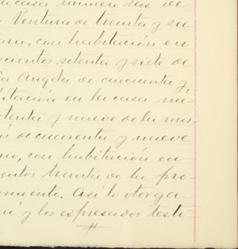 casa número seis de
Ventura de treinta y seis
con habitación en
cientos setenta y siete de
Angela de cincuenta y
bitación en la casa nú
tenta y nueve de la mis
de cuarenta y nueve
no, con habitación en
entos treinta de la pro
Así lo otorga
y los expresados testi